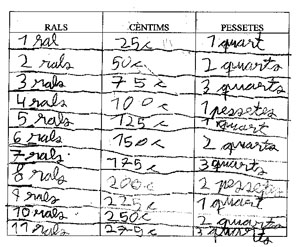 RALS CÈNTIMS PESSETES
1 ral 25c 1 quart
2 rals 50c 2 quarts
3 rals 75c 3 quarts
4 rals 100c 1 pessetes
5 rals 125c 1 quart
6 rals 150c 2 quarts
7 rals 175c 3 quarts
8 rals 200c 2 pessetes
9 rals 225c 1 quart
10 rals 250c 2 quarts
11 rals 275c 3 quarts